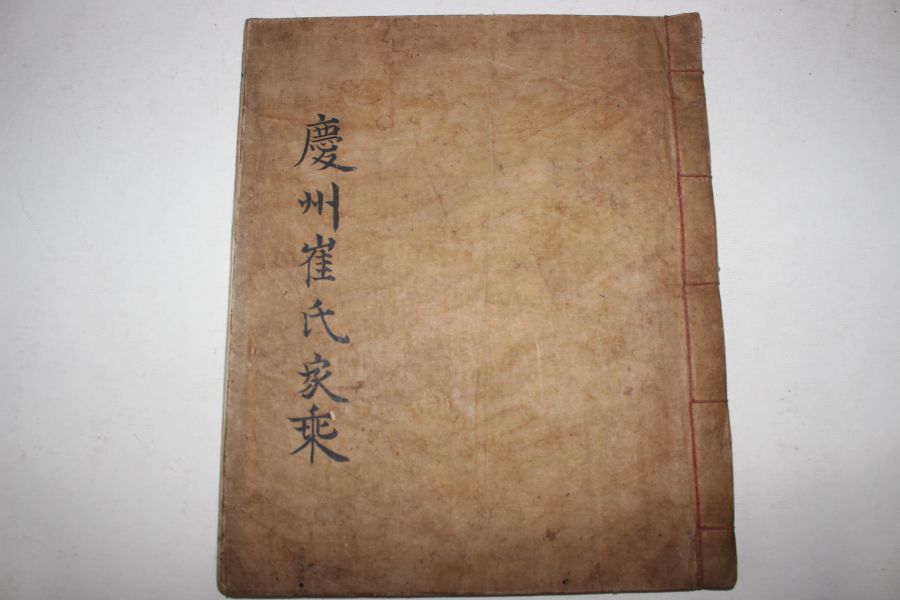 慶州崔氏家乘